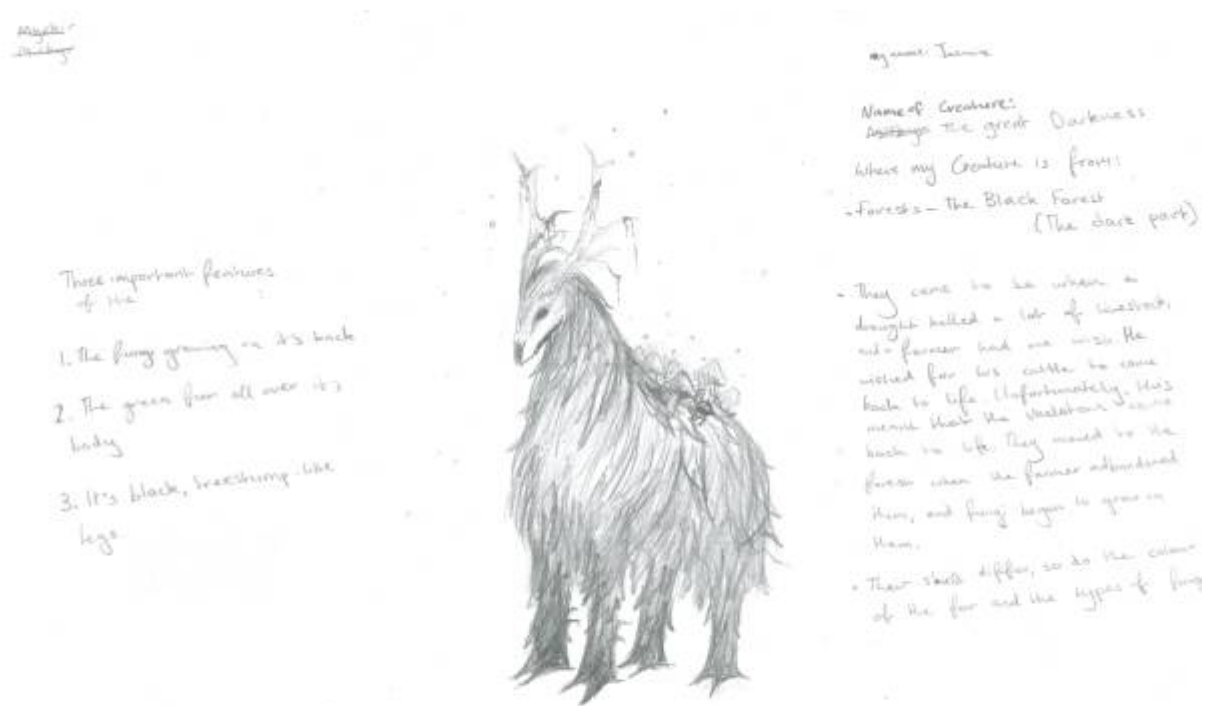 Three important features
of the
1. The fungi growing on it's back
2. The green fur all over it's
body
3. It's black, treestump-like
legs
my name:
Name of Creature:
The great Darkness
Where my Creature is from:
- Forests - The Black Forest
(The dark part)
• They came to be when a
drought killed a lot of livestock,
farmer had one wish. He
wished for his cattle to come
back to life. Unfortunately, this
meant that the skeletons came
back to life. They moved to the
forest when the farmer abandoned
them, and fungi began to grow on
them.
• Their skulls differ, so do the colour
of the fur and the types of fungi